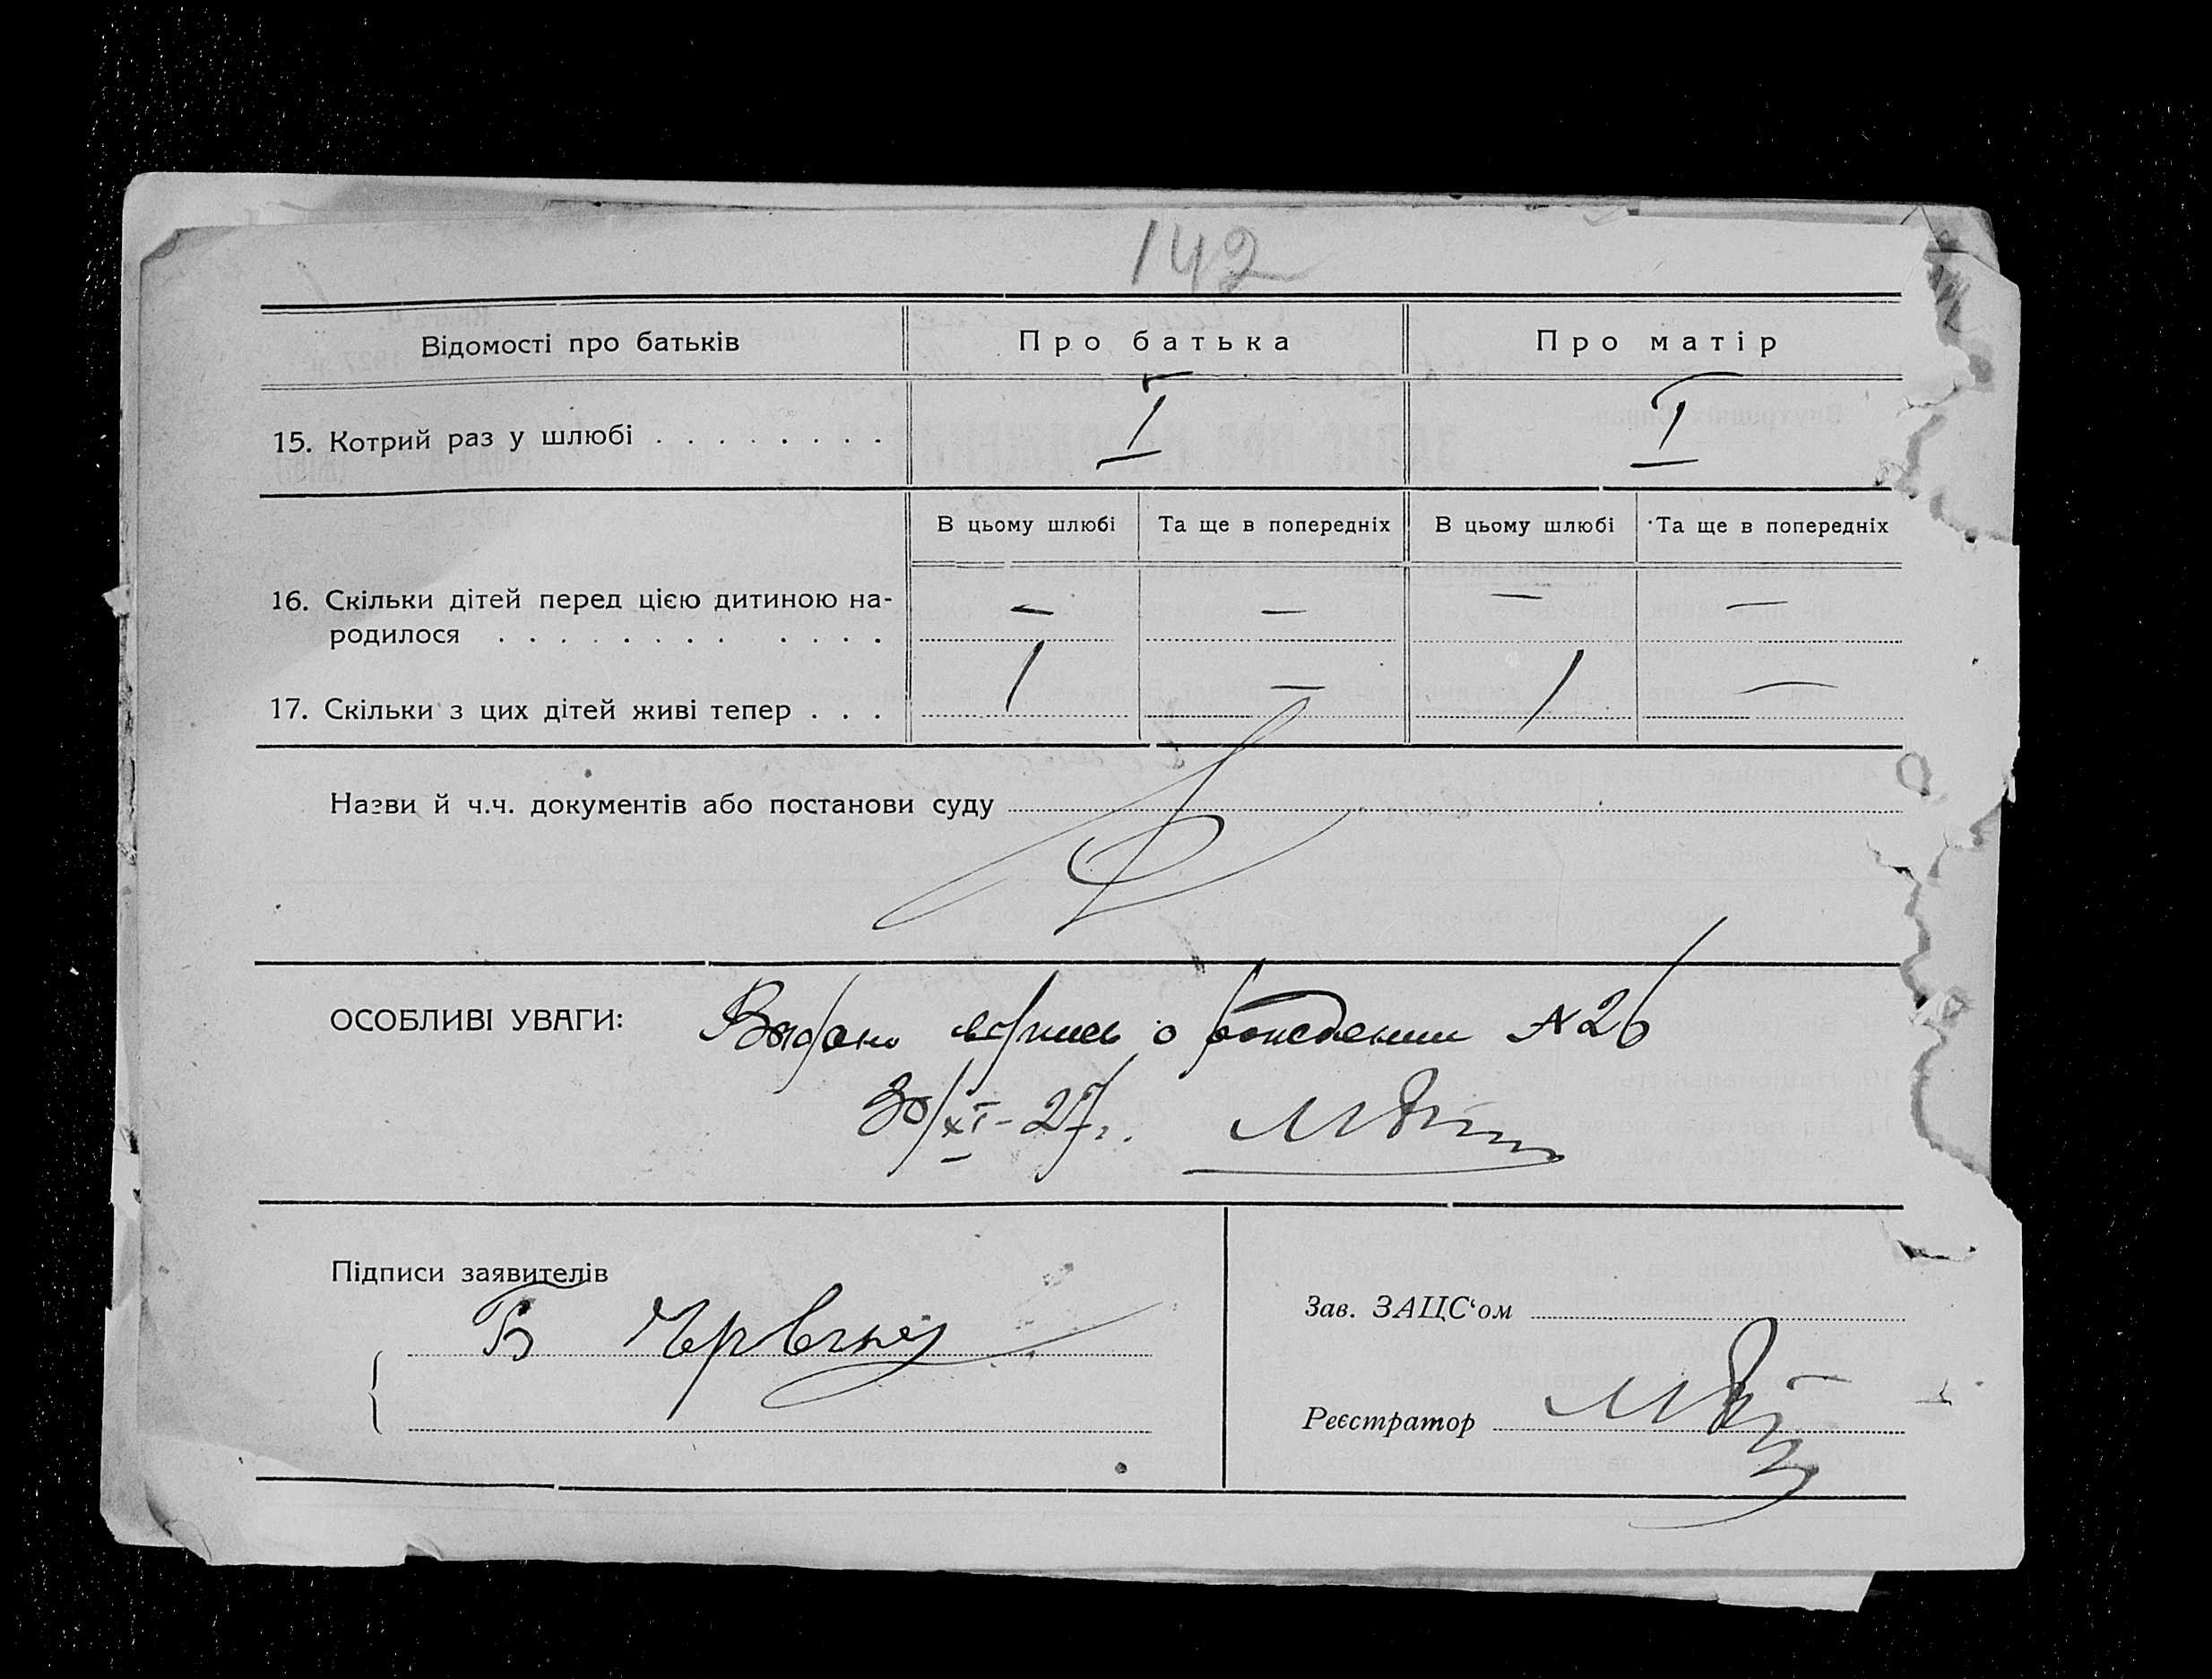 142
Відомості про батьків Про батька Про матір
15. Котрий раз у шлюбі . . . . . . . . I I
В цьому шлюбі Та ще в попередніх В цьому шлюбі Та ще в попередніх
16. Скільки дітей перед цією дитиною на-
родилося . . . . . . . . . . . . — — — —
17. Скільки з цих дітей живі тепер . . . 1 — 1 —
Назви й ч.ч. документів або постанови суду
ОСОБЛИВІ УВАГИ: Выдано о рождении № 26
30/XI-27 г.
Підписи заявителів
Зав. ЗАЦС'ом
Б
Реєстратор